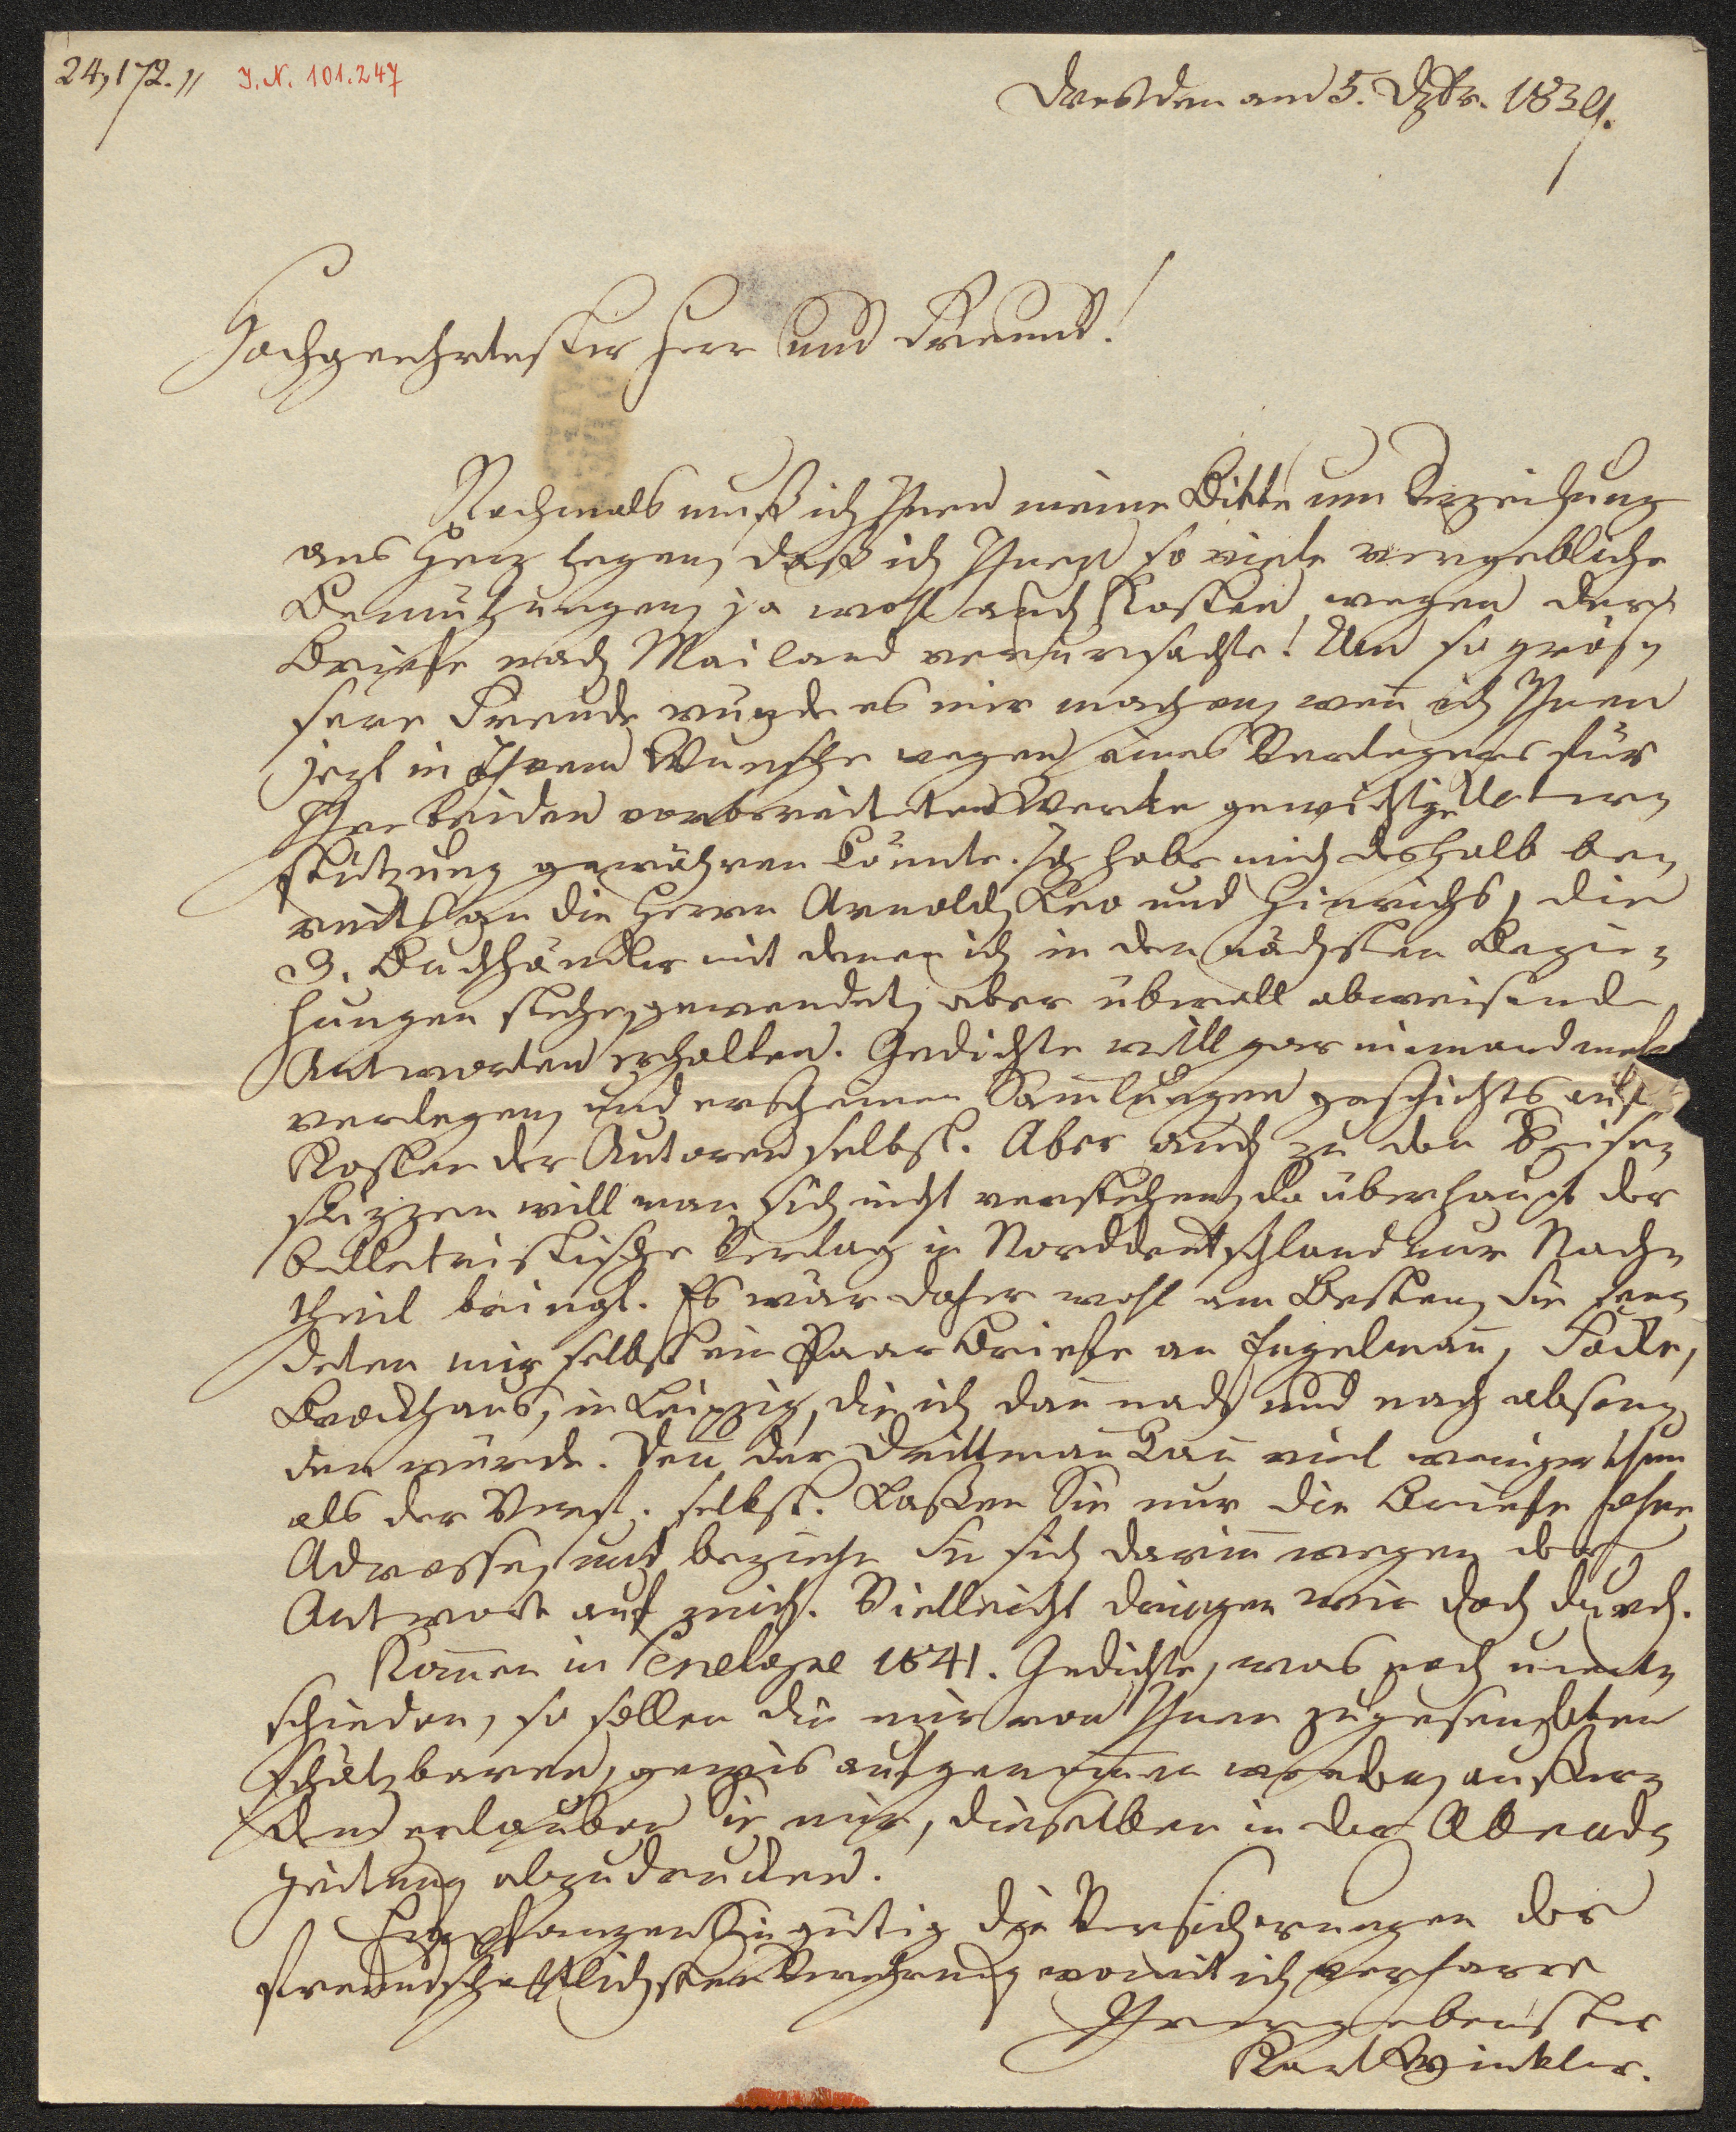 24,172.〃 I.N. 101.247
Dresden am 5. Dzbr. 1839.
Hochgeehrtester Herr und Freund!
Nochmals muß ich Ihnen meine Bitte um Verzeihung
ans Herz legen, daß ich Ihnen so viele vergebliche
Bemühungen, ja wohl auch Kosten, wegen der
Briefe nach Mailand verursachte! Um so größ-
sere Freude würde es mir machen, wen̅ ich Ihnen
jezt in Ihrem Wunsche wegen eines Verlegers für
Ihre beiden vorbereiteten Werke gewichtige Unter-
stützung gewähren könnte. Ich habe mich deshalb be-
reits an die Herrn Arnold, Leo und Hinrichs, die
3. Buchhändler mit denen ich in den nächsten Bezie-
hungen stehe, gewendet, aber überall abweisende
Antworten erhalten. Gedichte will gar niemand mehr
verlegen, und erscheinen Sam̅lungen auf
Kosten der Autoren selbst. Aber auch zu den Reise-
skizzen will man sich nicht verstehen, da überhaupt der
belletristische Verlag in Norddeutschland nur Nach-
theil bringt. Es wär daher wohl am Besten, Sie sen-
deten mir selbst ein Paar Briefe an Engelman̅, Focke,
Brockhaus, in Leipzig, die ich dan̅ nach und nach absen-
den würde. Den̅ der Drittman̅ kan̅ viel weniger thun
als der Verf. selbst. Laßen Sie nur die Briefe ohne
Adresse, und beziehn Sie sich darin̅ wegen der
Antwort auf mich. Vielleicht dringen wir doch durch.
Kom̅en in Penelope 1841. Gedichte, was noch unent-
schieden, so sollen die mir von Ihnen zugesendeten
schätzbaren, gewis aufgenom̅en werden, außer-
dem erlauben Sie mir, dieselben in der Abend-
zeitung abzudrucken.
Empfangen Sie gütig die Versicherungen der
freundschaftlichsten Verehrung womit ich verharre
Ihr ergebenster
Karl Winkler.